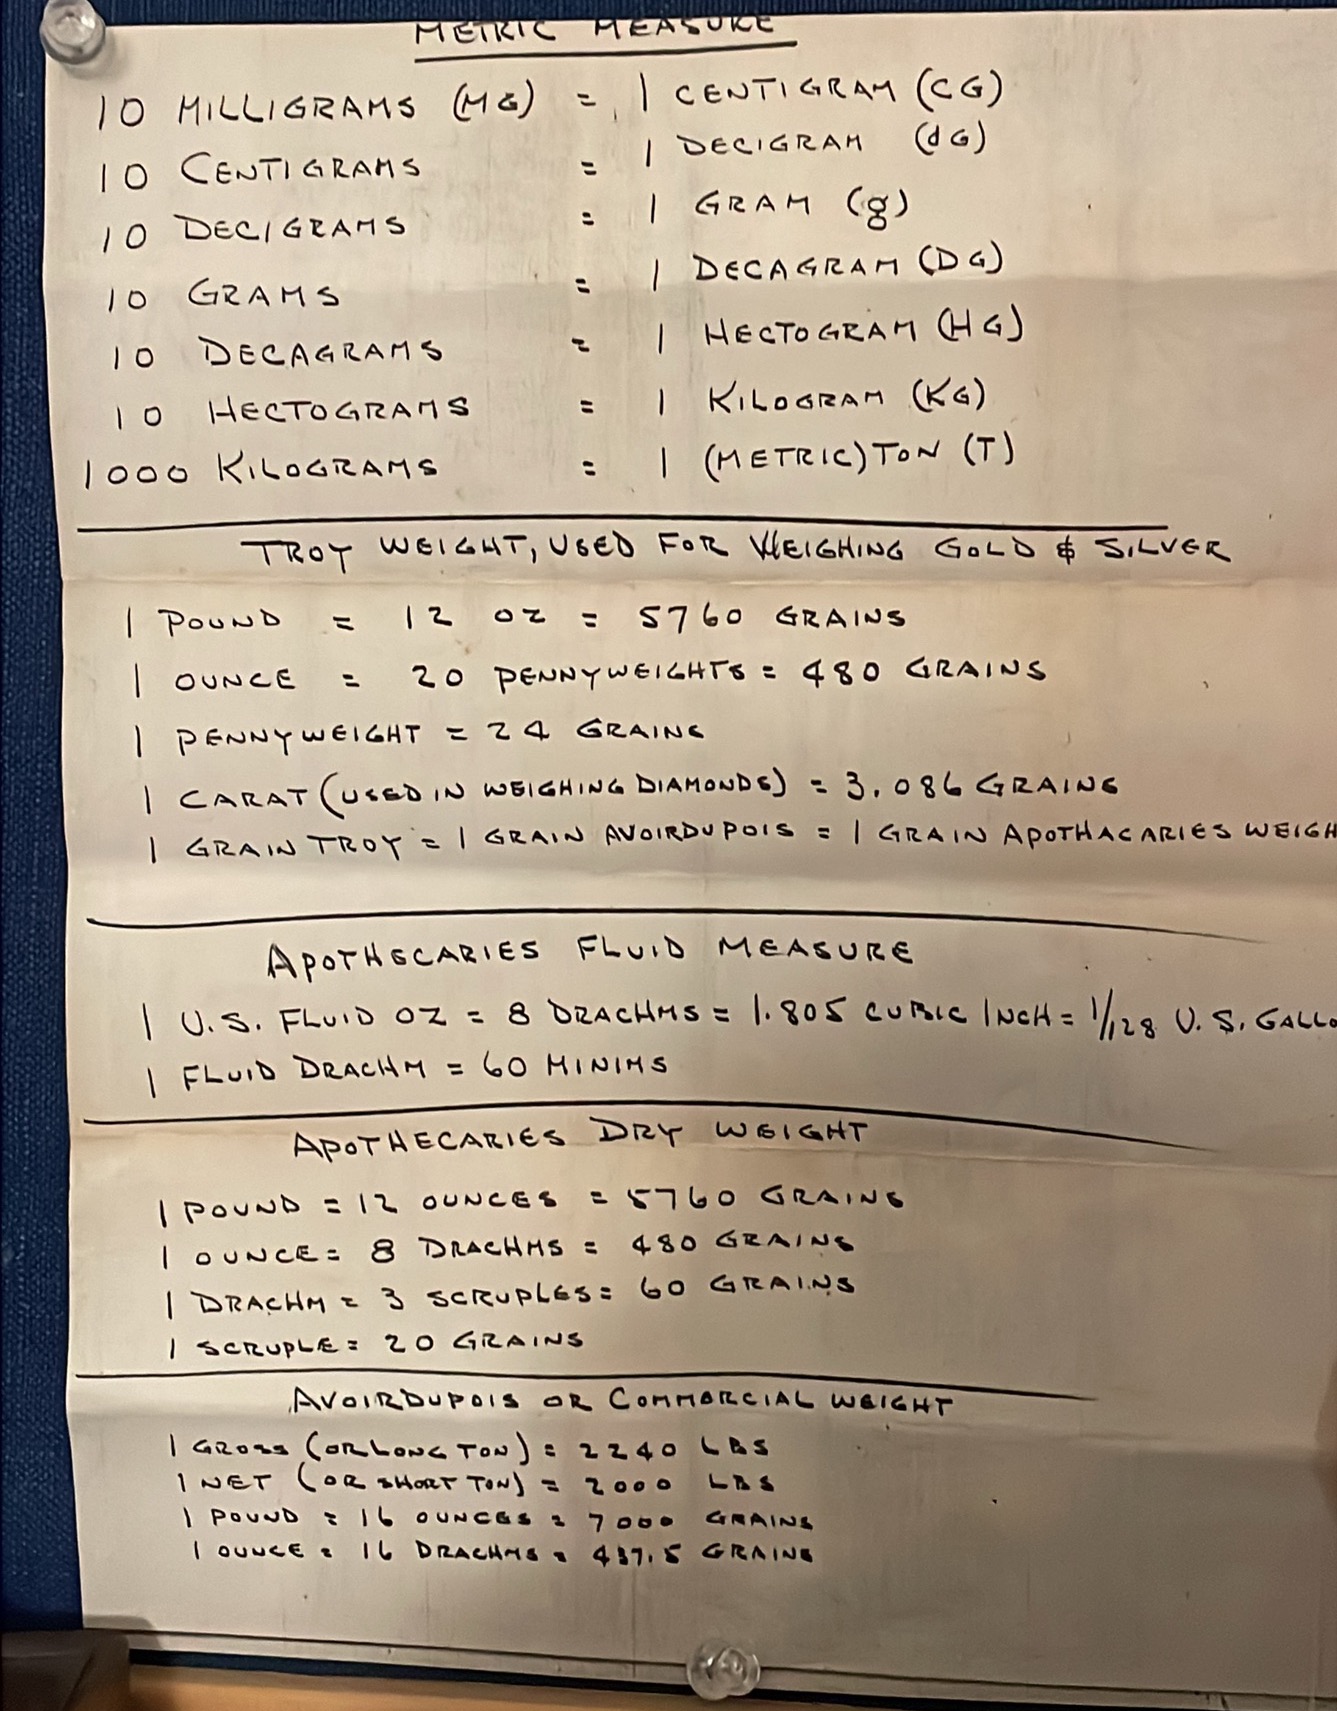 METRIC MEASURE
10 MILLIGRAMS (MG) = 1 CENTIGRAM (CG)
10 CENTIGRAMS = 1 DECIGRAM (dG)
10 DECIGRAMS = 1 GRAM (g)
10 GRAMS = 1 DECAGRAM (DG)
10 DECAGRAMS = 1 HECTOGRAM (HG)
10 HECTOGRAMS = 1 KILOGRAM (KG)
1000 KILOGRAMS = 1 (METRIC) TON (T)
TROY WEIGHT, USED FOR WEIGHING GOLD & SILVER
1 POUND = 12 OZ = 5760 GRAINS
1 OUNCE = 20 PENNYWEIGHTS = 480 GRAINS
1 PENNYWEIGHT = 24 GRAINS
1 CARAT (USED IN WEIGHING DIAMONDS) = 3.086 GRAINS
1 GRAIN TROY = 1 GRAIN AVOIRDUPOIS = 1 GRAIN APOTHACARIES WEIGH
APOTHECARIES FLUID MEASURE
1 U.S. FLUID OZ = 8 DRACHMS = 1.805 CUBIC INCH = 1/128 U.S. GALLO
1 FLUID DRACHM = 60 MINIMS
APOTHECARIES DRY WEIGHT
1 POUND = 12 OUNCES = 5760 GRAINS
1 OUNCE = 8 DRACHMS = 480 GRAINS
1 DRACHM = 3 SCRUPLES = 60 GRAINS
1 SCRUPLE = 20 GRAINS
AVOIRDUPOIS OR COMMERCIAL WEIGHT
1 GROSS (OR LONG TON) = 2240 LBS
1 NET (OR SHORT TON) = 2000 LBS
1 POUND = 16 OUNCES = 7000 GRAINS
1 OUNCE = 16 DRACHMS = 437.5 GRAINS